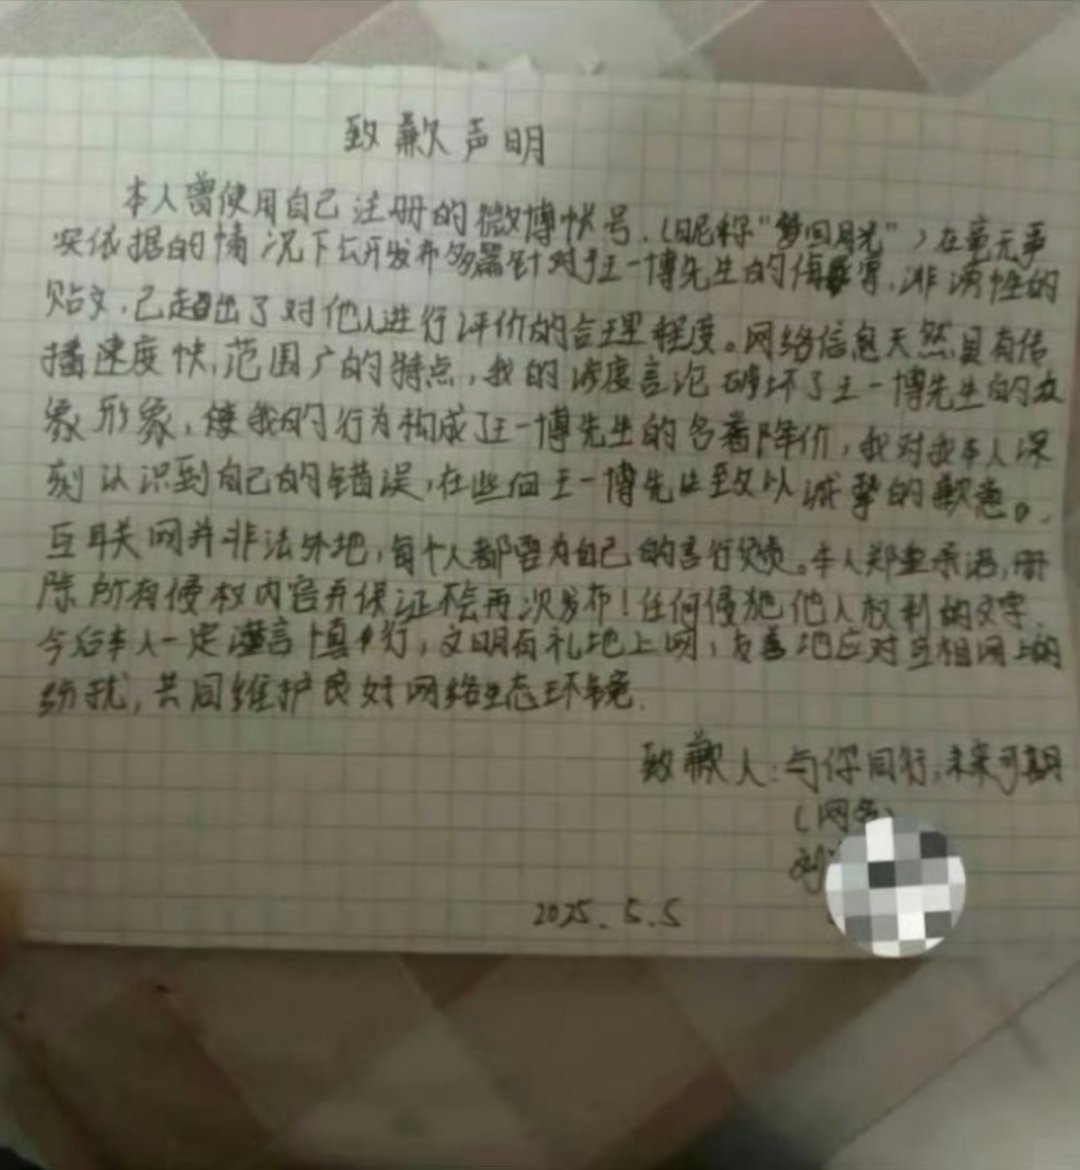 致歉声明
本人曾使用自己注册的微博帐号,(昵称"梦回月光")在毫无事
实依据的情况下公开发布多篇针对王一博先生的侮辱、诽谤性的
贴文,已超出了对他人进行评价的合理程度。网络信息天然具有传
播速度快,范围广的特点,我的涉度言论破坏了王一博先生的
象形象,使我的行为构成了王一博先生的名著降价,我对我本人深
刻认识到自己的错误,在此向王一博先生致以诚挚的歉意。
互联网并非法外地,每个人都要为自己的言行负责。本人郑重承诺,删
除所有侵权内容并保证不会再次发布!任何侵犯他人权利的文字
今后本人一定谨言慎行,文明有礼地上网,友善地应对互相网上的
纷扰,共同维护良好网络生态环境.
致歉人:与你同行,未来可期
(网名)
刘
2025.5.5